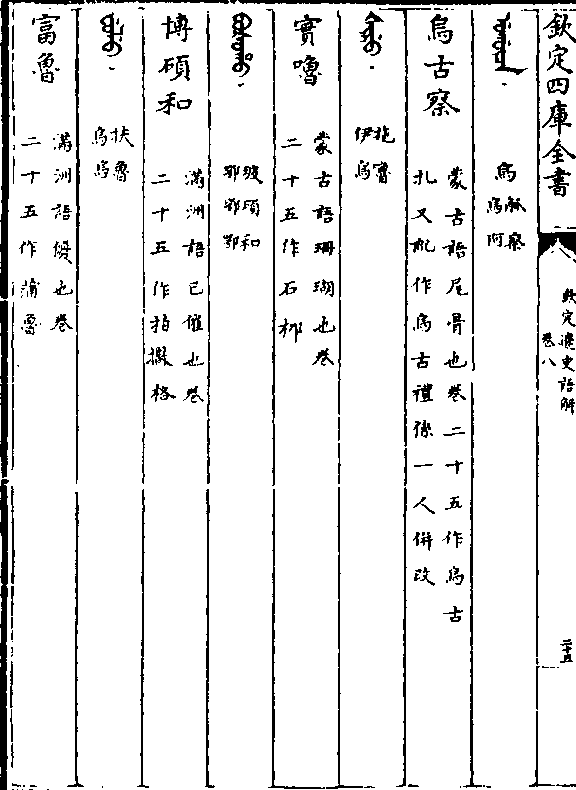 欽定四庫全書
欽定遼史語解
卷八
二十五
烏觚察
烏阿
烏古察
蒙古語尾骨也卷二十五作烏古
扎又訛作烏古禮係一人併改
伊烏
實嚕
蒙古語珊瑚也卷
二十五作石柳
碩和
鄂鄂鄂
博碩和
滿洲語已催也卷
二十五作拍撒格
扶魯
烏烏
富魯
滿洲語優也卷
二十五作蒲魯